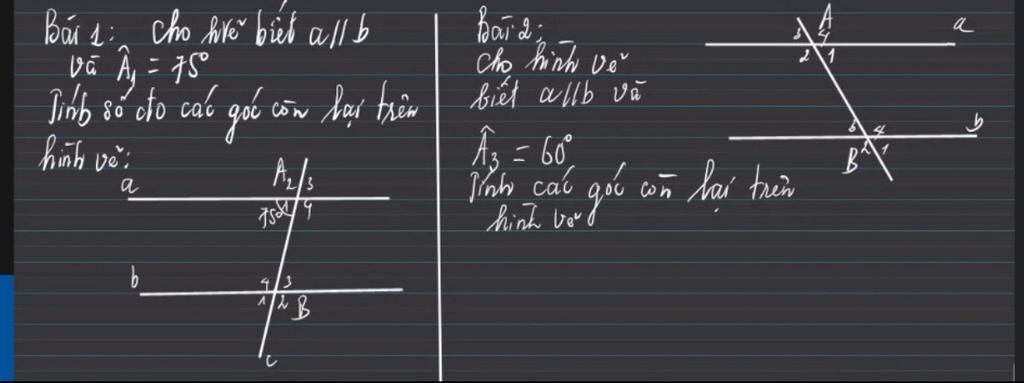 Bài 1: Cho hvẽ biết a//b
và Â₁ = 75°
Tính số đo các góc còn lại trên
hình vẽ:
a
A 2 3
75° 1 4
b
4 3
1 2 B
c
Bài 2:
cho hình vẽ
biết a//b và
Â₃ = 60°
Tính các góc còn lại trên
hình vẽ
A
a
3 4
2 1
b
3 4
B 2 1